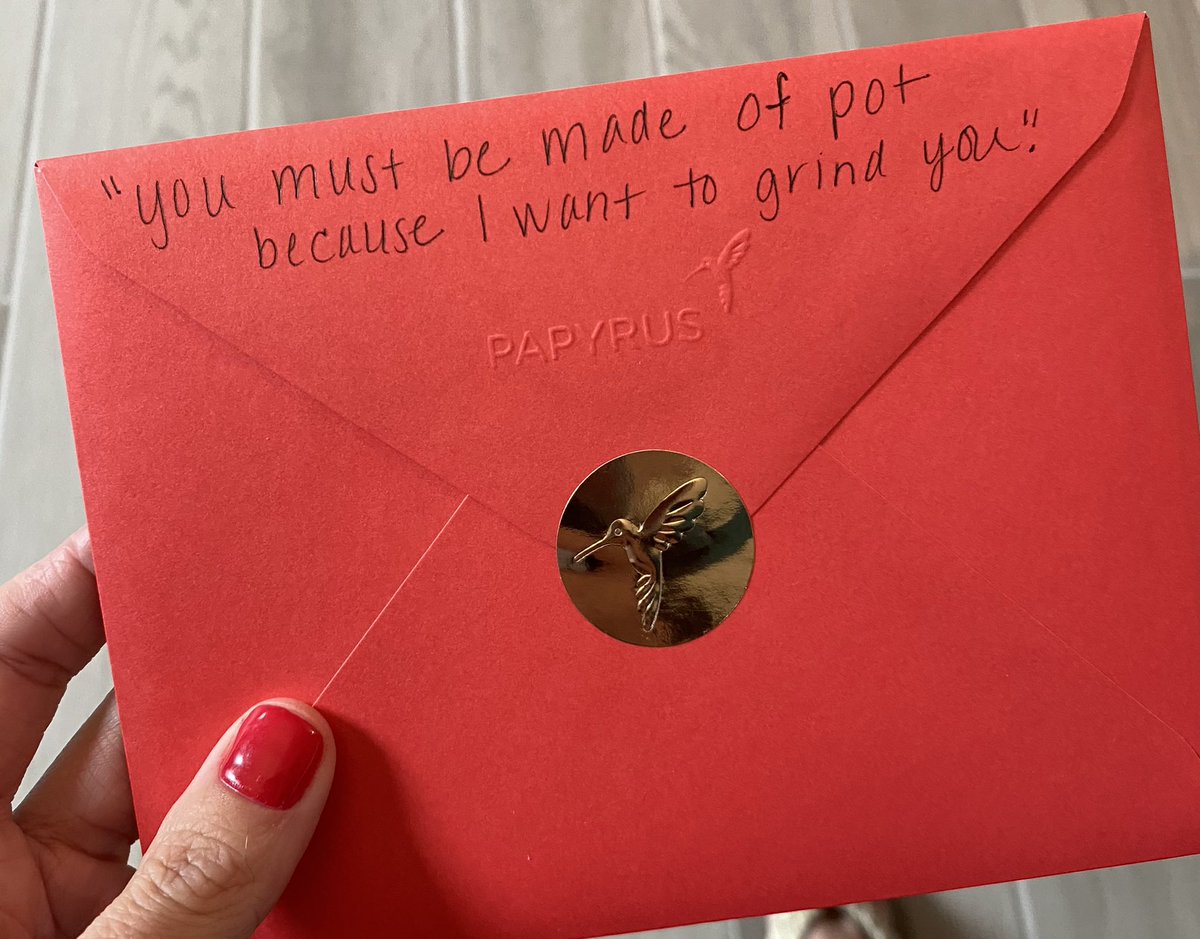 "you must be made of pot
because I want to grind you."
PAPYRUS